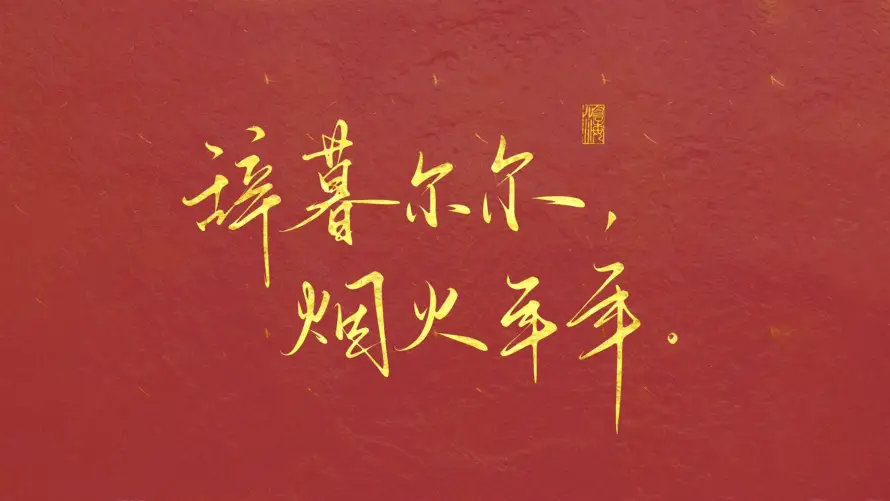 辞暮尔尔，
烟火年年。